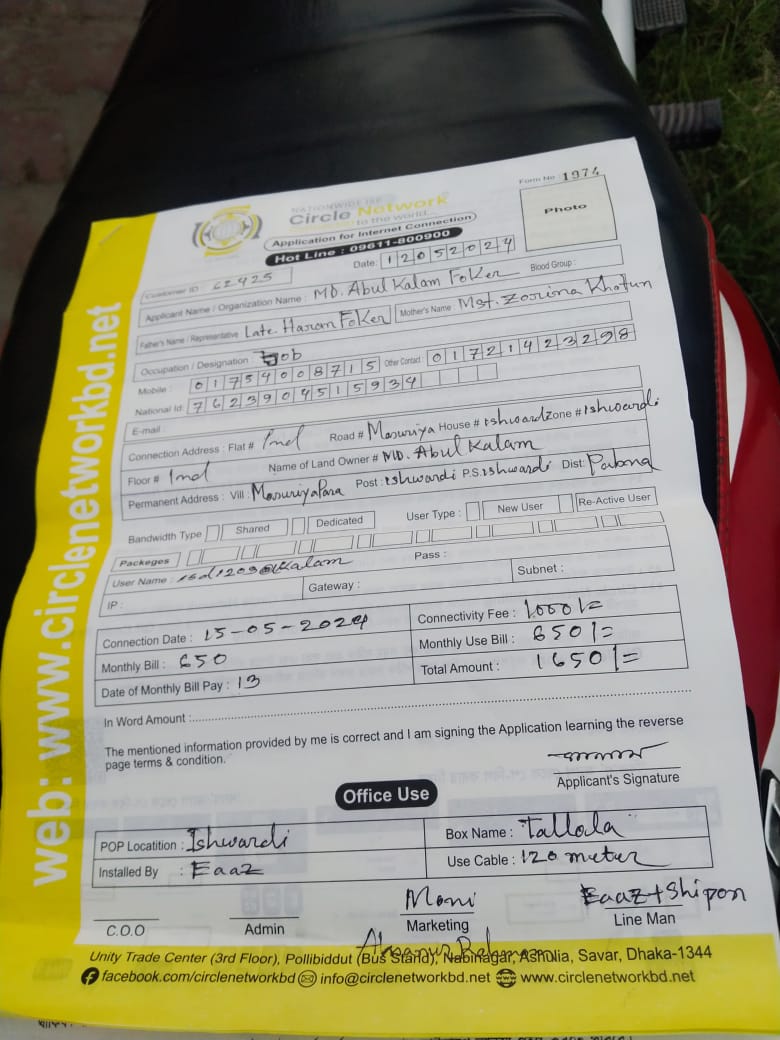 Form No 1974
NATIONWIDE ISP
Circle Network
to the world...
Application for Internet Connection
Hot Line : 09611-800900
Photo
Date: 12052024
Customer ID : 62425
Applicant Name / Organization Name : MD. Abul Kalam Foker Blood Group :
Father's Name / Representative Late. Haran Foker Mother's Name : Mst. Zorina Khatun
Occupation / Designation Job
Mobile : 01754008715 Other Contact : 01721423298
National Id: 7623904515934
E-mail
Connection Address : Flat # Ind Road # Masuriya House # Ishwardi Zone # Ishwardi
Floor # Ind Name of Land Owner # MD. Abul Kalam
Permanent Address : Vill : Masuriya Para Post : Ishwardi P.S. Ishwardi Dist: Pabna
Bandwidth Type Shared Dedicated User Type : New User Re-Active User
Packeges
User Name : Pass :
IP : Gateway : Subnet :
Connection Date : 15-05-2024 Connectivity Fee : 1000/=
Monthly Bill : 650 Monthly Use Bill : 650/=
Date of Monthly Bill Pay : 13 Total Amount : 1650/=
In Word Amount :
The mentioned information provided by me is correct and I am signing the Application learning the reverse
page terms & condition.
Applicant's Signature
Office Use
POP Locatition : Ishwardi Box Name : Tallola
Installed By : Eaaz Use Cable : 120 meter
Moni Eaaz + Shipon
C.O.O Admin Marketing Line Man
Unity Trade Center (3rd Floor), Pollibiddut (Bus Stand), Nabinagar, Ashulia, Savar, Dhaka-1344
facebook.com/circlenetworkbd info@circlenetworkbd.net www.circlenetworkbd.net
web: www.circlenetworkbd.net